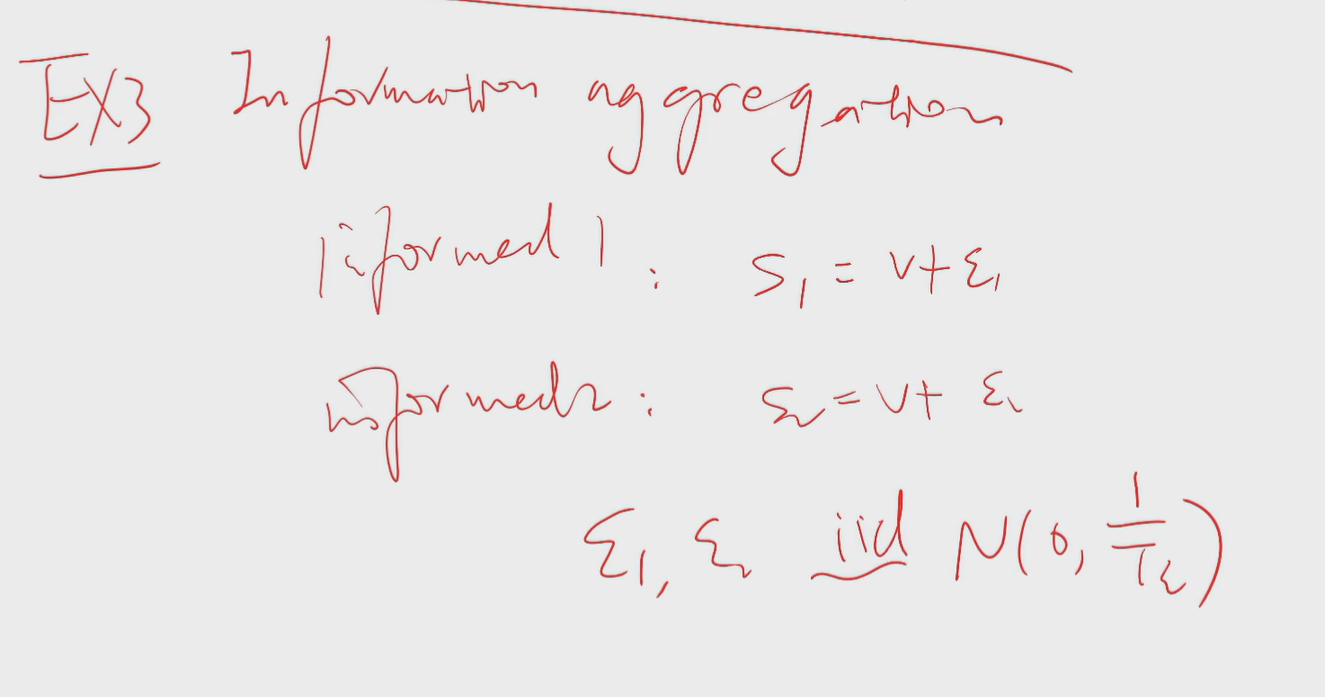 EX3 Information aggregation
informed 1: S₁ = v+ε₁
informed2: S₂ = v+ ε₂
ε₁, ε₂ iid N(0, 1/τ_ε)